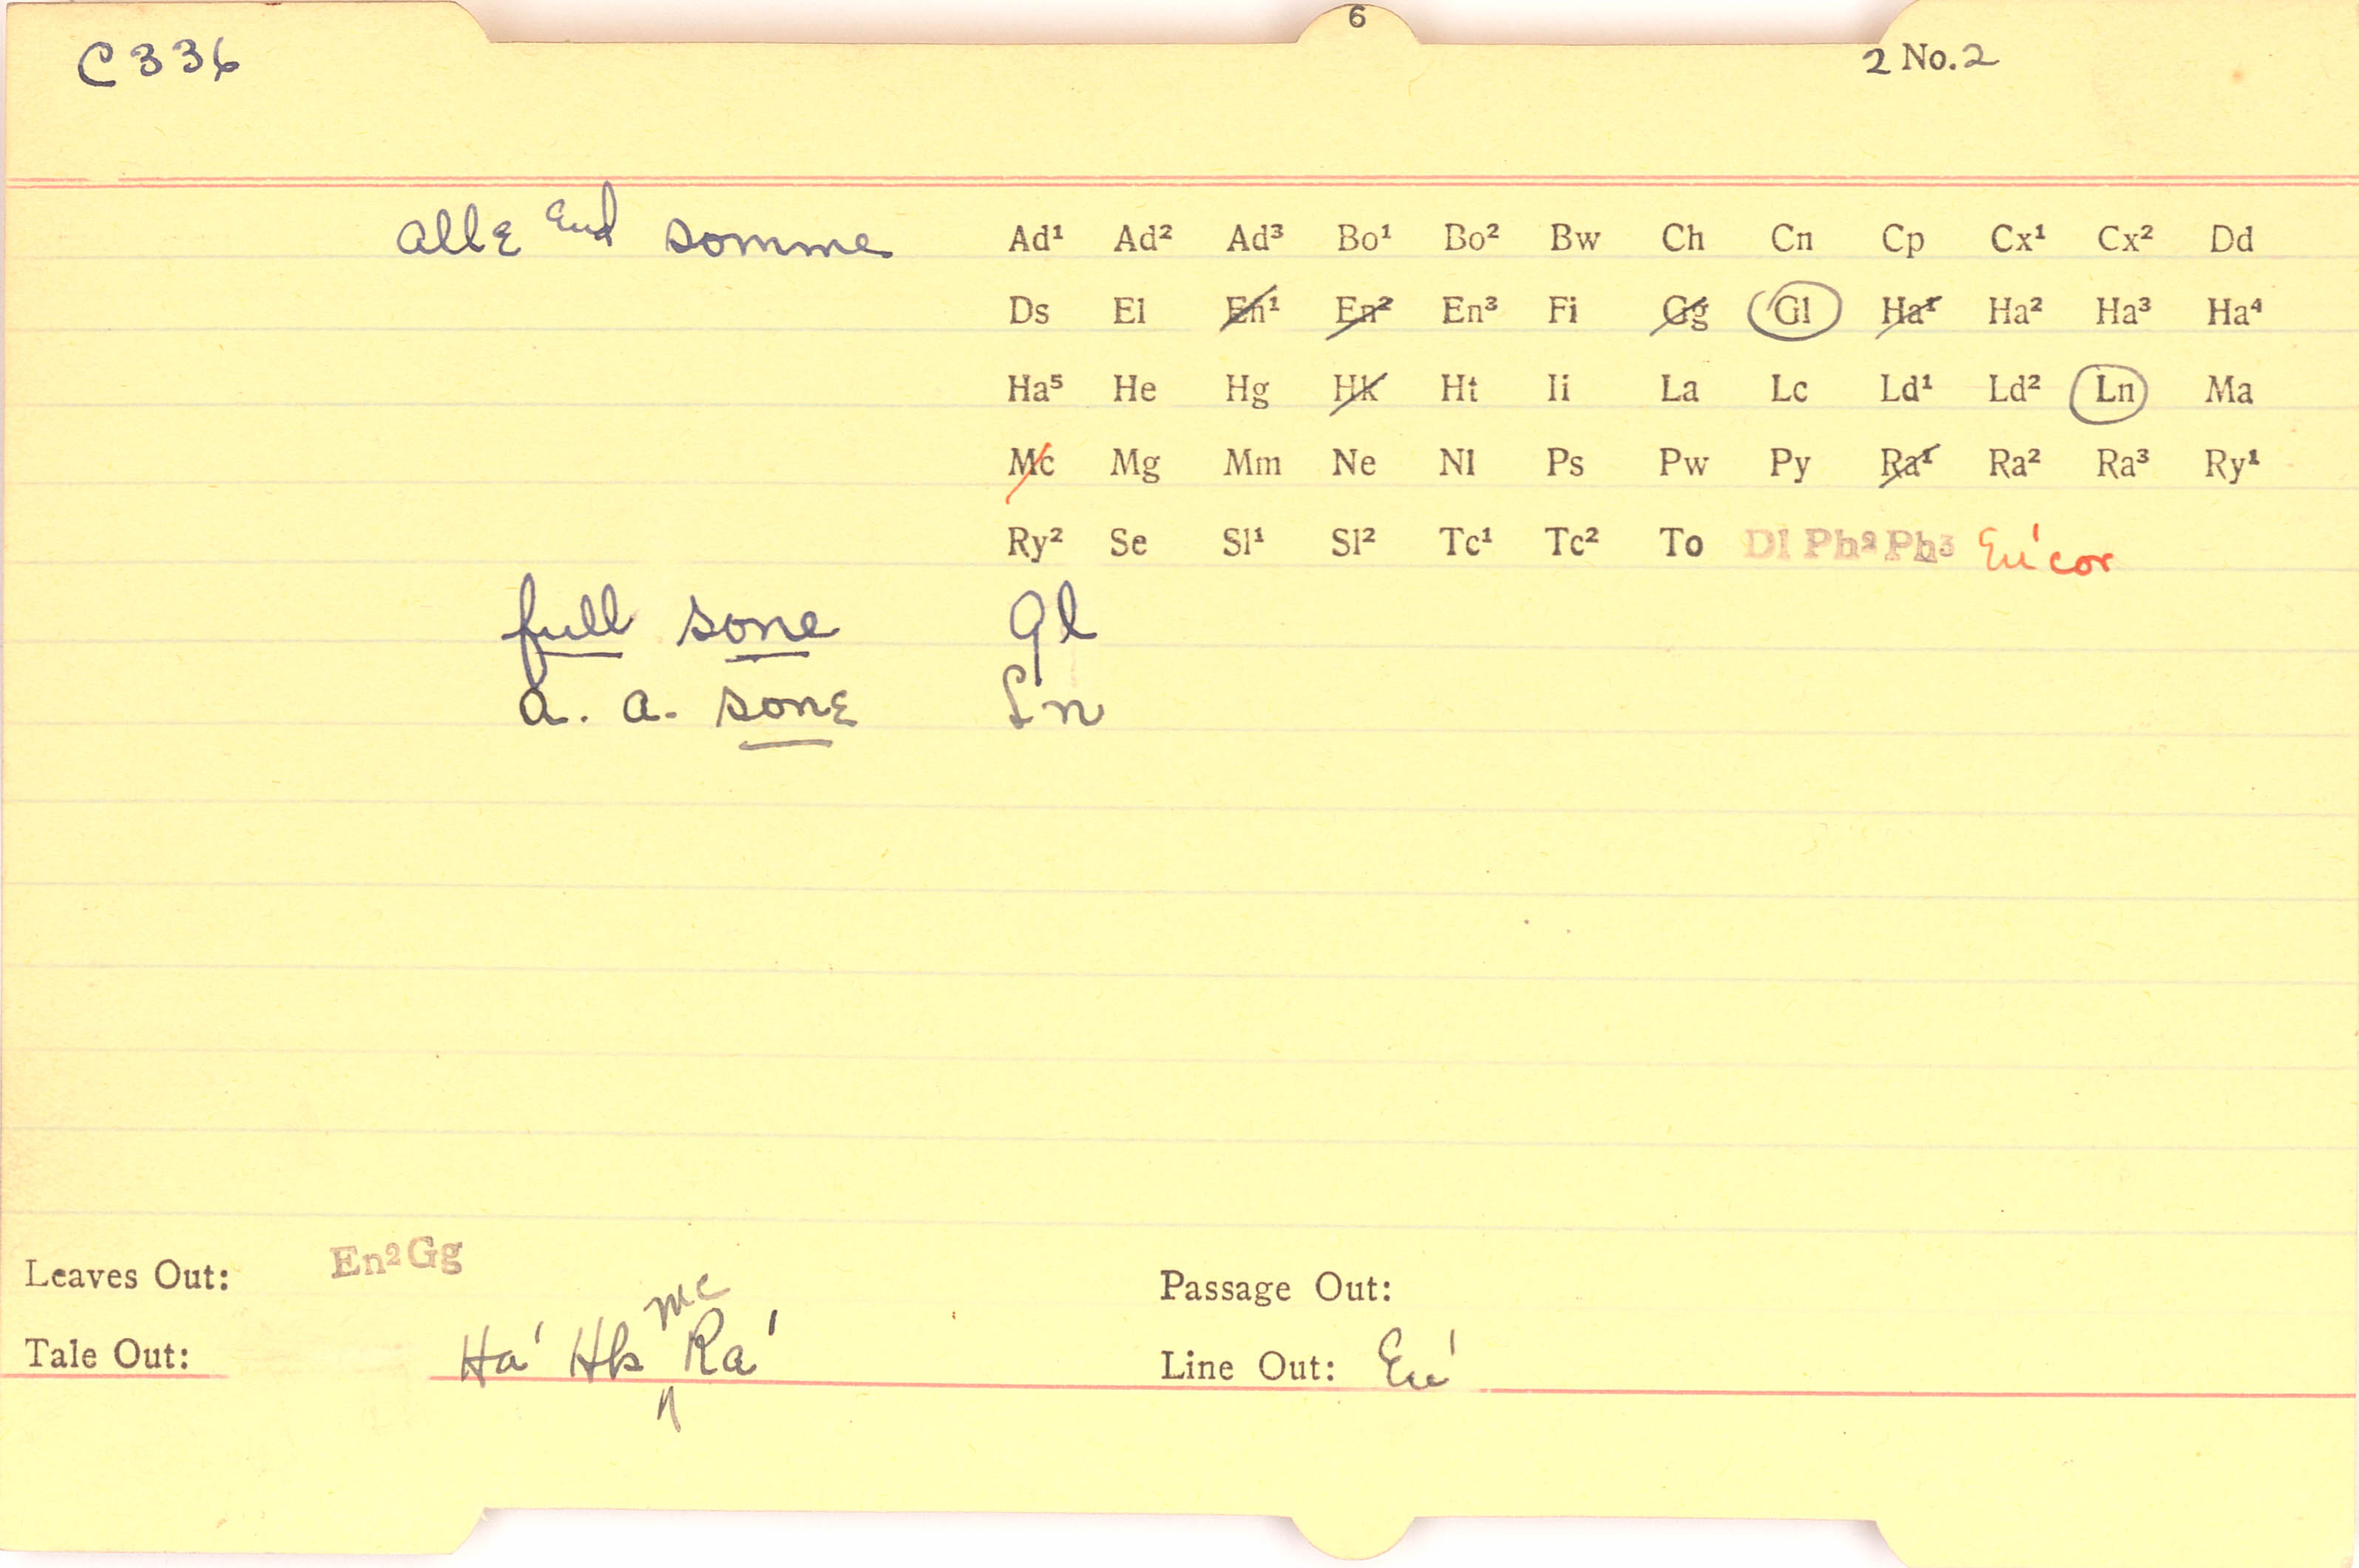 6
C336 2 No.2
alle End somme Ad¹ Ad² Ad³ Bo¹ Bo² Bw Ch Cn Cp Cx¹ Cx² Dd
Ds El En¹ En² En³ Fi Gg Gl Ha¹ Ha² Ha³ Ha⁴
Ha⁵ He Hg Hk Ht Ii La Lc Ld¹ Ld² Ln Ma
Mc Mg Mm Ne Nl Ps Pw Py Ra¹ Ra² Ra³ Ry¹
Ry² Se Sl¹ Sl² Tc¹ Tc² To Dl Ph² Ph³ En¹ cor
full sone Gl
a. a. sone Ln
Leaves Out: En² Gg Passage Out:
Tale Out: Ha¹ Hk Mc Ra¹ Line Out: En¹